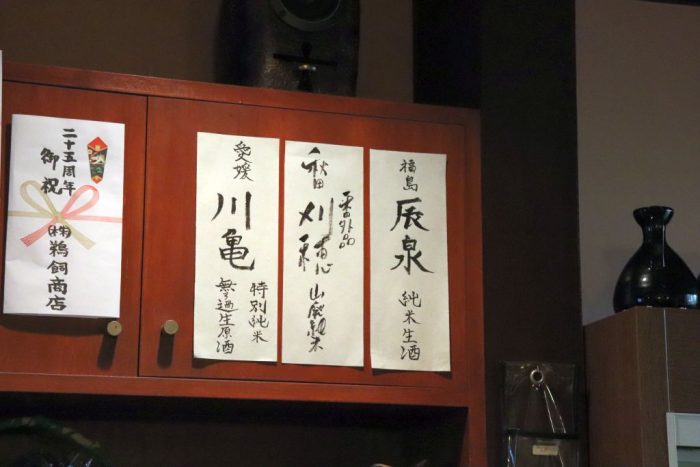 福島
辰泉
純米生酒
秋田
番外品
刈穂
山廃純米
愛媛
川亀
特別純米
無ろ過生原酒
二十五周年
御祝
(株)鵜飼商店